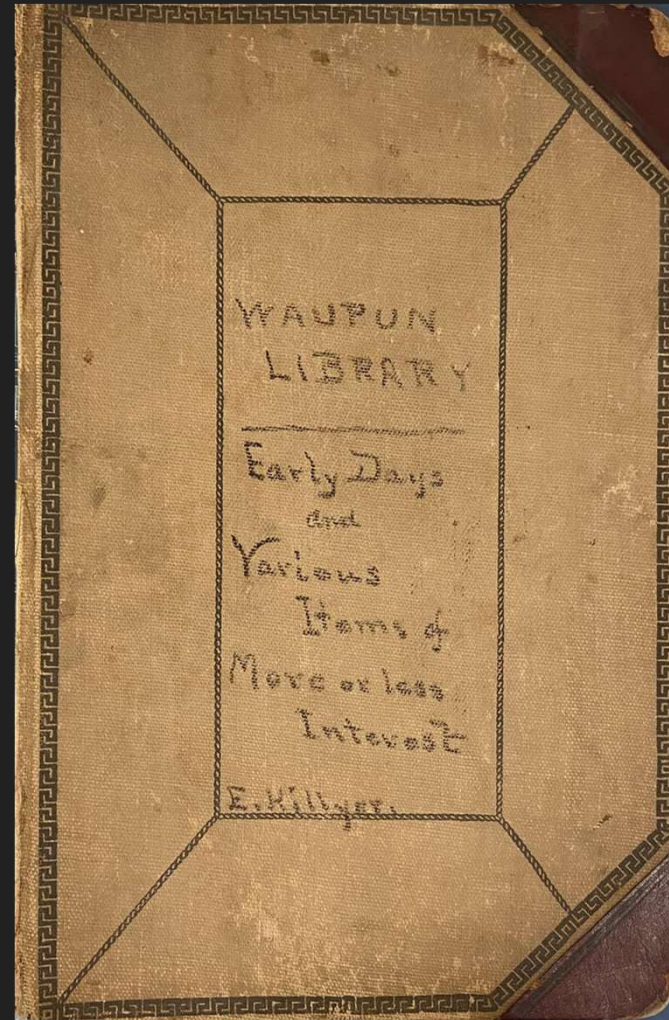 WAUPUN
LIBRARY
Early Days
and
Various
Items of
More or less
Interest
E. Hillyer.